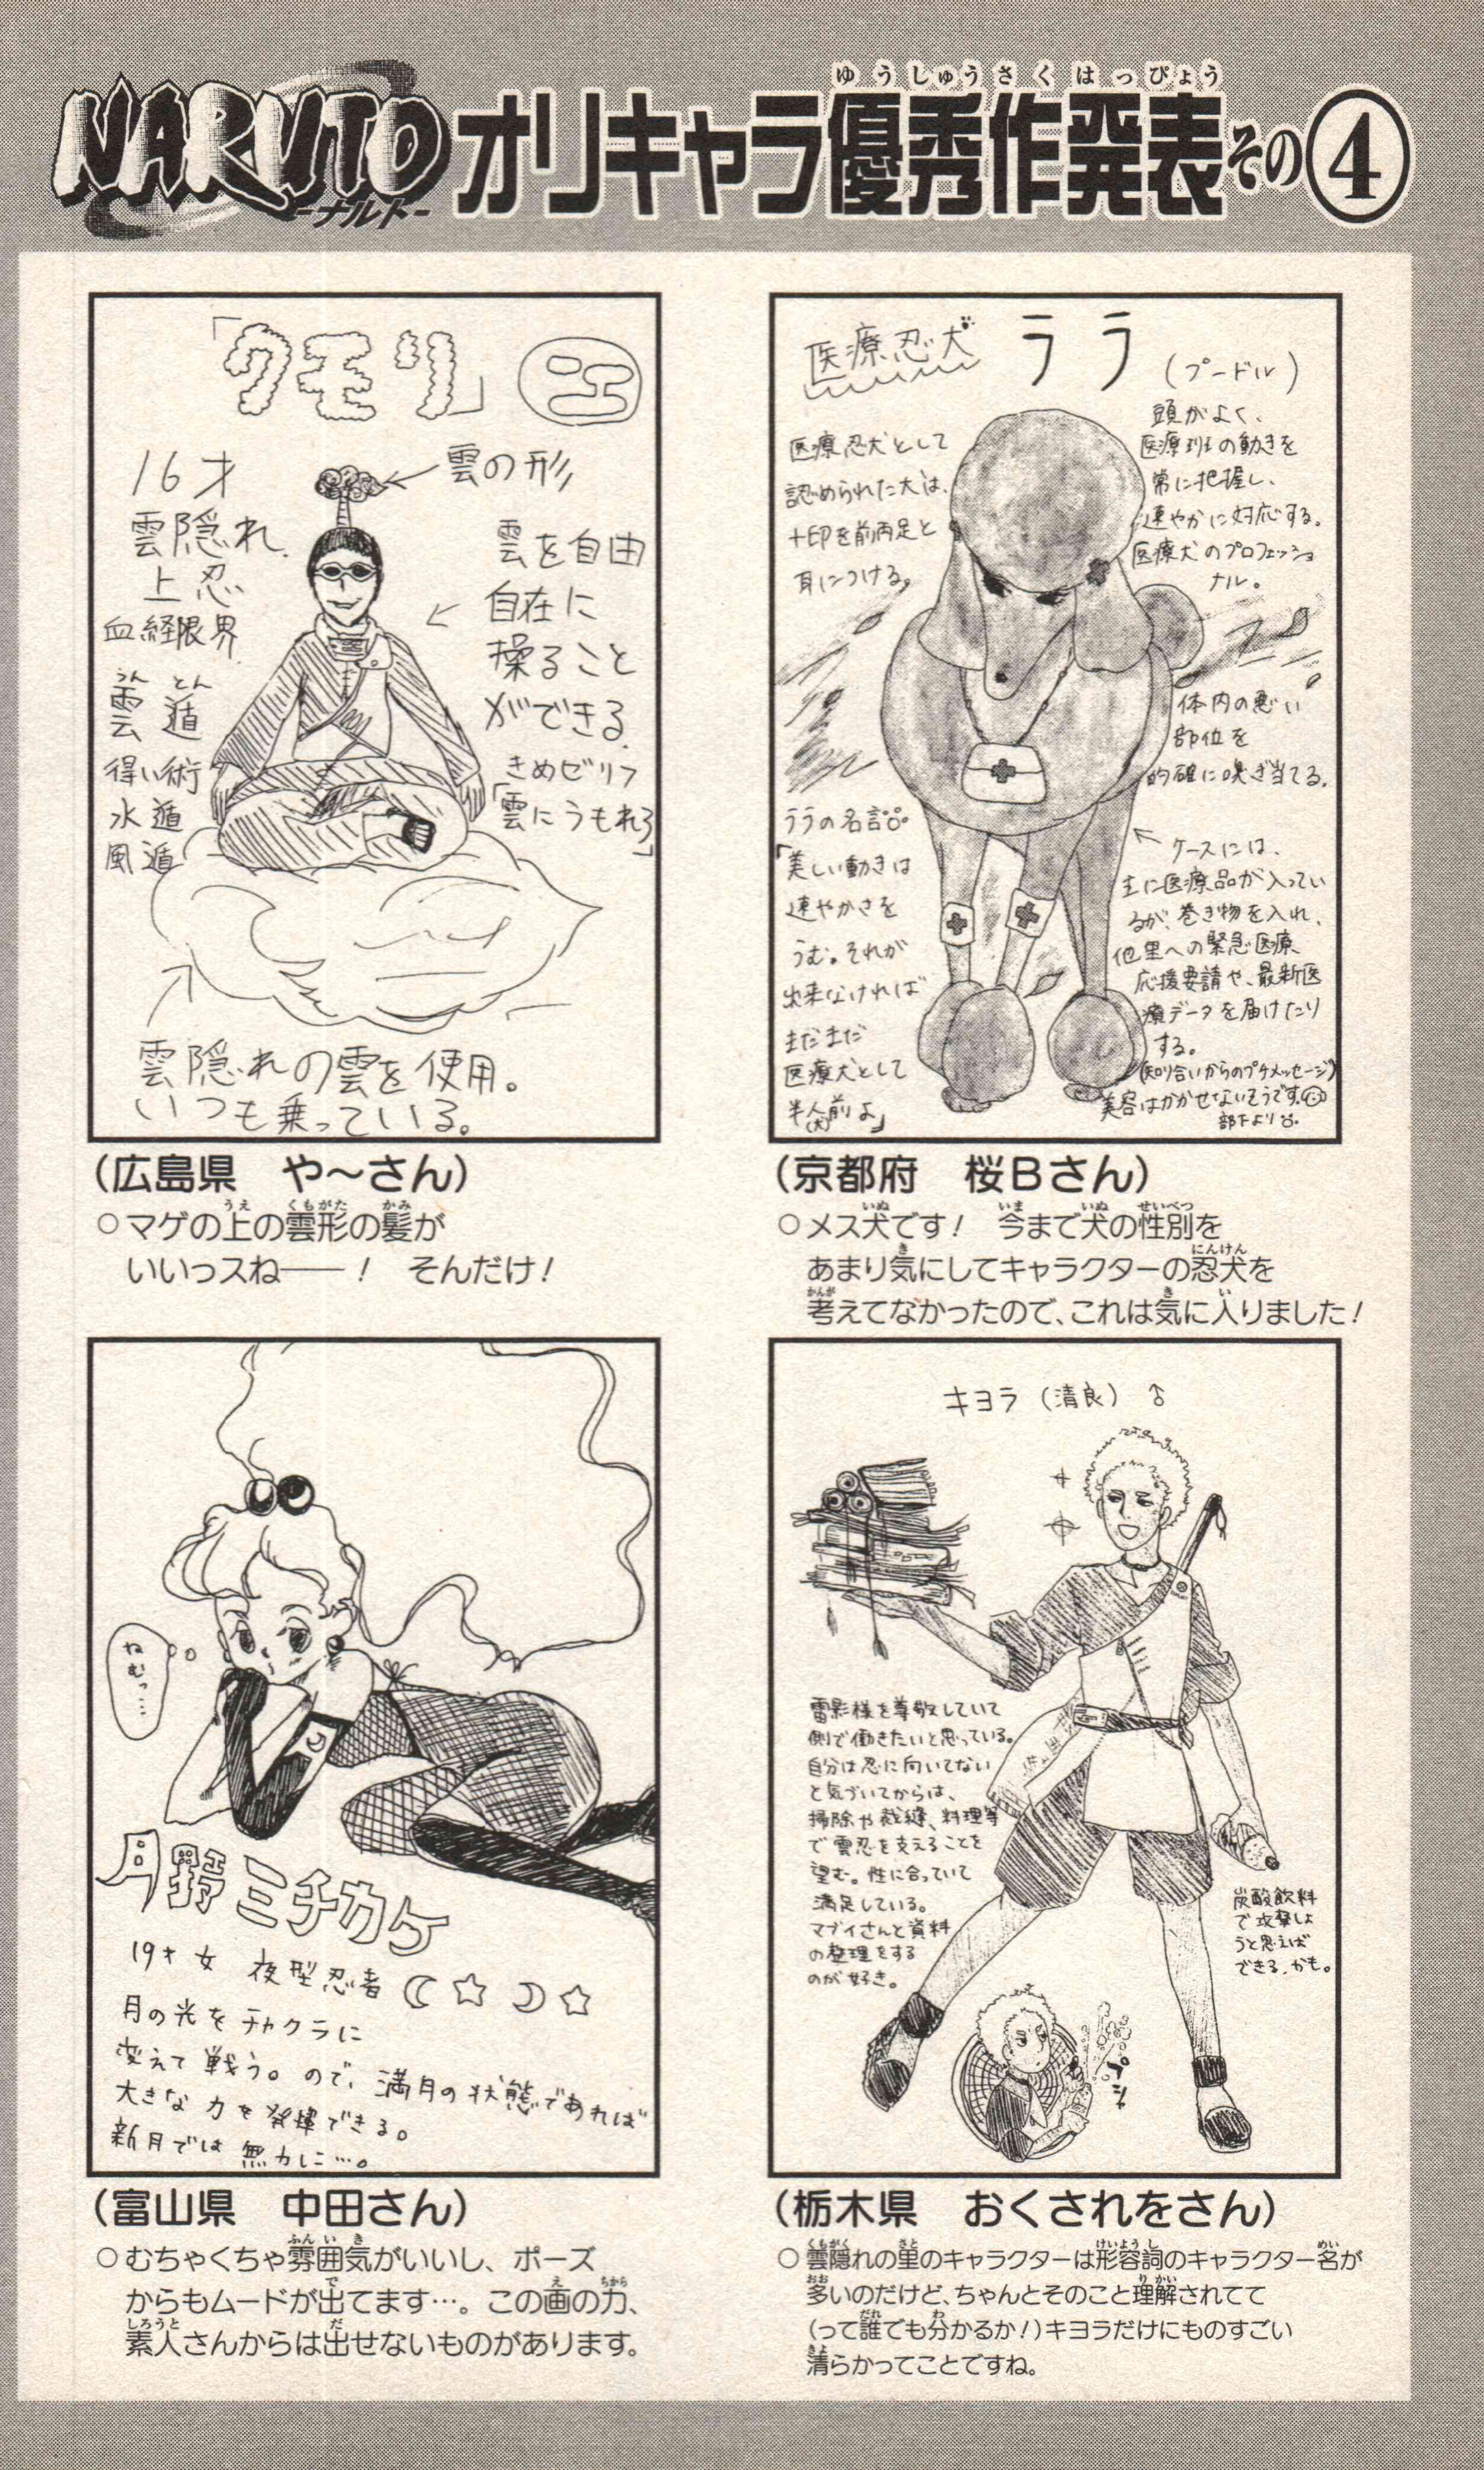 ゆうしゅうさくはっぴょう
NARUTO
-ナルト-
オリキャラ優秀作発表その④
「クモリ」
16才
雲隠れ
上忍
血経限界
うんとん
雲遁
得い術
水遁
風遁
雲の形
雲を自由
自在に
操ること
ができる
きめゼリフ
「雲にうもれろ」
雲隠れの雲を使用。
いつも乗っている。
(広島県 や~さん)
○マゲの上の雲形の髪が
いいっスね――! そんだけ!
医療忍犬 ララ (プードル)
医療忍犬として
認められた犬は、
十印を前両足と
耳につける。
頭がよく、
医療班の動きを
常に把握し、
速やかに対応する。
医療犬のプロフェッショ
ナル。
体内の悪い
部位を
的確に嗅ぎ当てる。
ララの名言
「美しい動きは
速やかさを
うむ。それが
出来なければ
まだまだ
医療犬として
半人前よ」
(犬)
ケースには、
主に医療品が入ってい
るが、巻き物を入れ、
他里への緊急医療
応援要請や、最新医
療データを届けたり
する。
(知り合いからのプチメッセージ)
美容はかかせないそうです。
部下より
(京都府 桜Bさん)
○メス犬です! 今まで犬の性別を
あまり気にしてキャラクターの忍犬を
考えてなかったので、これは気に入りました!
ねむっ…
月野ミチカケ
19才 女 夜型忍者☾☆☽☆
月の光をチャクラに
変えて戦う。ので、満月の状態であれば
大きな力を発揮できる。
新月では無力に…。
(富山県 中田さん)
○むちゃくちゃ雰囲気がいいし、ポーズ
からもムードが出てます…。この画の力、
素人さんからは出せないものがあります。
キヨラ(清良)♂
雷影様を尊敬していて
側で働きたいと思っている。
自分は忍に向いてない
と気づいてからは、
掃除や裁縫、料理等
で雲忍を支えることを
望む。性に合っていて
満足している。
マブイさんと資料
の整理をする
のが好き。
炭酸飲料
で攻撃しよ
うと思えば
できる、かも。
プシュ
(栃木県 おくされをさん)
○雲隠れの里のキャラクターは形容詞のキャラクター名が
多いのだけど、ちゃんとそのこと理解されてて
(って誰でも分かるか!)キヨラだけにものすごい
清らかってことですね。